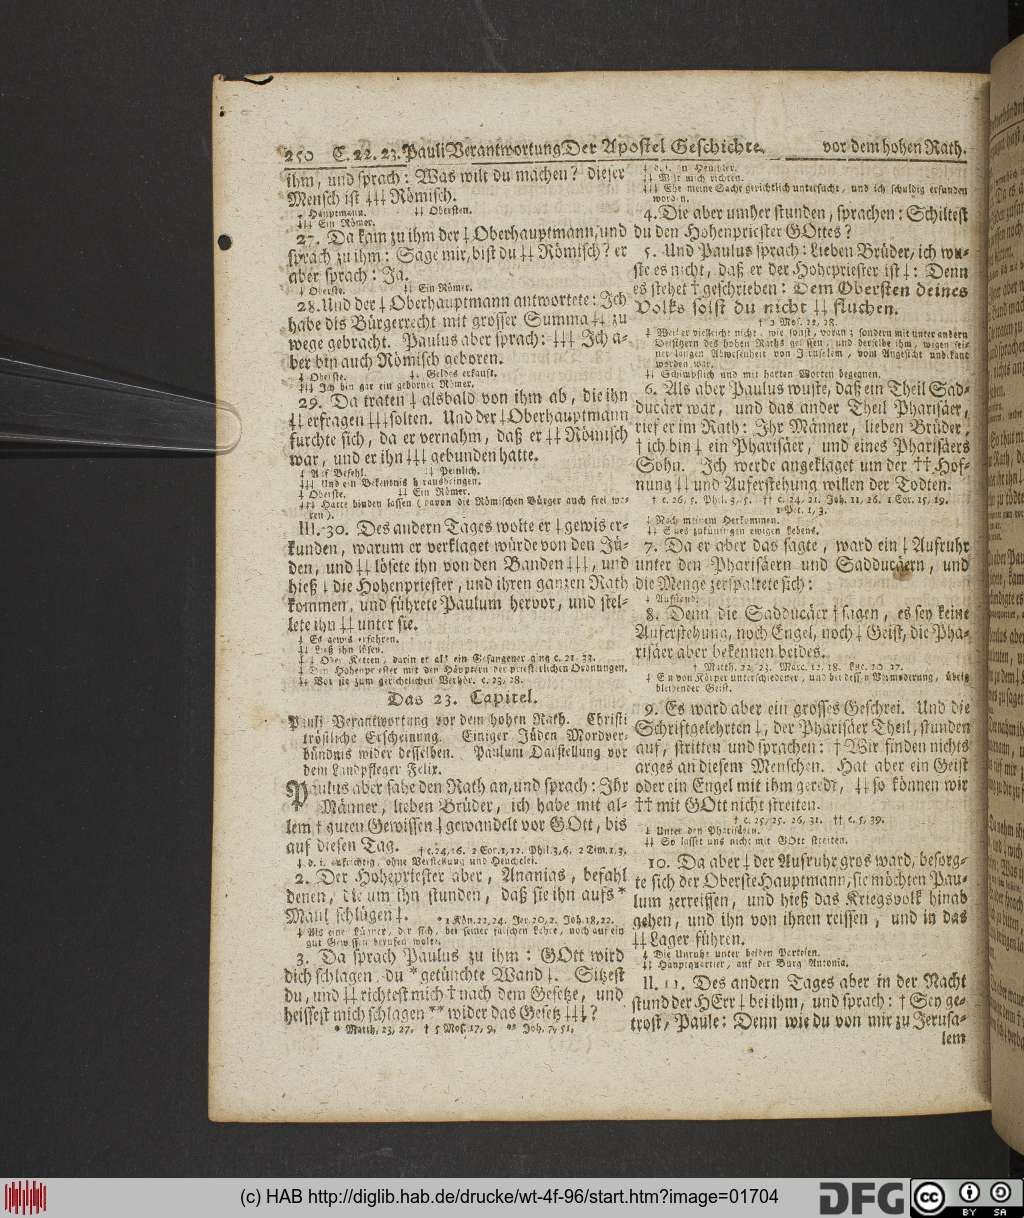 250 C. 22. 23. Pauli Verantwortung Der Apostel Geschichte. vor dem hohen Rath.
ihm, und sprach: Was wilt du machen? dieser
Mensch ist ‡‡‡ Römisch.
‡ Hauptmann. ‡‡ Obersten.
‡‡‡ Ein Römer.
27. Da kam zu ihm der ‡ Oberhauptmann, und
sprach zu ihm: Sage mir, bist du ‡‡ Römisch? er
aber sprach: Ja.
‡ Oberste. ‡‡ Ein Römer.
28. Und der ‡ Oberhauptmann antwortete: Ich
habe dis Bürgerrecht mit grosser Summa ‡‡ zu
wege gebracht. Paulus aber sprach: ‡‡‡ Ich a-
ber bin auch Römisch geboren.
‡ Oberste. ‡‡ Geldes erkauft.
‡‡‡ Ich bin gar ein geborner Römer.
29. Da traten ‡ alsbald von ihm ab, die ihn
‡‡ erfragen ‡‡‡ solten. Und der ‡ Oberhauptmann
furchte sich, da er vernahm, daß er ‡‡ Römisch
war, und er ihn ‡‡‡ gebunden hatte.
‡ Auf Befehl. ‡‡ Peinlich.
‡‡‡ Und ein Bekentnis herausbringen.
‡ Oberste. ‡‡ Ein Römer.
‡‡‡ Hatte binden lassen (davon die Römischen Bürger auch frei wa-
ren).
III. 30. Des andern Tages wolte er ‡ gewis er-
kunden, warum er verklaget würde von den Jü-
den, und ‡‡ lösete ihn von den Banden ‡‡‡, und
hieß ‡ die Hohenpriester, und ihren ganzen Rath
kommen, und führete Paulum hervor, und stel-
lete ihn ‡‡ unter sie.
‡ Es gewis erfahren.
‡‡ Ließ ihn lösen.
‡‡‡ Oder Ketten, darin er als ein Gefangener ging c. 21, 33.
‡ Den Hohenpriester mit den Häuptern der priesterlichen Ordnungen.
‡‡ Vor sie zum gerichtlichen Verhör. c. 23, 28.
Das 23. Capitel.
Pauli Verantwortung vor dem hohen Rath. Christi
tröstliche Erscheinung. Einiger Jüden Mordver-
bündnis wider denselben. Pauluni Darstellung vor
dem Landpfleger Felix.
Paulus aber sahe den Rath an, und sprach: Ihr
Männer, lieben Brüder, ich habe mit al-
lem † guten Gewissen ‡ gewandelt vor GOtt, bis
auf diesen Tag. † c. 24, 16. 2 Cor. 1, 12. Phil. 3, 6. 2 Tim. 1, 3.
‡ d. i. aufrichtig, ohne Verstellung und Heuchelei.
2. Der Hohepriester aber, Ananias, befahl
denen, die um ihn stunden, daß sie ihn aufs *
Maul schlügen ‡. * 1 Kön. 22, 24. Jer. 20, 2. Joh. 18, 22.
‡ Als eine Lügner, der sich, bei seiner falschen Lehre, noch auf ein
gut Gewissen berufen wolte.
3. Da sprach Paulus zu ihm: GOtt wird
dich schlagen, du * getünchte Wand ‡. Sitzest
du, und ‡‡ richtest mich † nach dem Gesetze, und
heissest mich schlagen ** wider das Gesetz ‡‡‡?
* Matth. 23, 27. † 5 Mos. 17, 9. ** Joh. 7, 51.
‡ d. i. du Heuchler.
‡‡ Wilt mich richten.
‡‡‡ Ehe meine Sache gerichtlich untersucht, und ich schuldig erfunden
worden.
4. Die aber umher stunden, sprachen: Schiltest
du den Hohenpriester GOttes?
5. Und Paulus sprach: Lieben Brüder, ich wu-
ste es nicht, daß er der Hohepriester ist ‡: Denn
es stehet † geschrieben: Dem Obersten deines
Volks solst du nicht ‡‡ fluchen.
† 2 Mos. 22, 28.
‡ Weil er vielleicht nicht, wie sonst, voran, sondern mit unter andern
Beisitzern des hohen Raths gesessen, und derselbe ihm, wegen sei-
ner langen Abwesenheit von Jerusalem, vom Angesicht unbekant
worden war.
‡‡ Schimpflich und mit harten Worten begegnen.
6. Als aber Paulus wuste, daß ein Theil Sad-
ducäer war, und das ander Theil Pharisäer,
rief er im Rath: Ihr Männer, lieben Brüder,
† ich bin ‡ ein Pharisäer, und eines Pharisäers
Sohn. Ich werde angeklaget um der †† Hof-
nung ‡‡ und Auferstehung willen der Todten.
† c. 26, 5. Phil. 3, 5. †† c. 24, 21. Joh. 11, 26. 1 Cor. 15, 19.
1 Pet. 1, 3.
‡ Nach meinem Herkommen.
‡‡ Eines zukünftigen ewigen Lebens.
7. Da er aber das sagte, ward ein ‡ Aufruhr
unter den Pharisäern und Sadducäern, und
die Menge zerspaltete sich:
‡ Aufstand.
8. Denn die Sadducäer † sagen, es sey keine
Auferstehung, noch Engel, noch ‡ Geist, die Pha-
risäer aber bekennen beides.
† Matth. 22, 23. Marc. 12, 18. Luc. 20, 27.
‡ Ein von Körper unterschiedener, und bei dessen Vermoderung, übrig
bleibender Geist.
9. Es ward aber ein grosses Geschrei. Und die
Schriftgelehrten ‡, der Pharisäer Theil, stunden
auf, stritten und sprachen: † Wir finden nichts
arges an diesem Menschen. Hat aber ein Geist
oder ein Engel mit ihm geredt, ‡‡ so können wir
†† mit GOtt nicht streiten.
† c. 25, 25. 26, 31. †† c. 5, 39.
‡ Unter den Pharisäern.
‡‡ So lasset uns nicht mit GOtt streiten.
10. Da aber ‡ der Aufruhr gros ward, besorg-
te sich der Oberste Hauptmann, sie möchten Pau-
lum zerreissen, und hieß das Kriegsvolk hinab
gehen, und ihn von ihnen reissen, und in das
‡‡ Lager führen.
‡ Die Unruhe unter beiden Parteien.
‡‡ Hauptquartier, auf der Burg Antonia.
II. 11. Des andern Tages aber in der Nacht
stund der HErr ‡ bei ihm, und sprach: † Sey ge-
trost, Paule: Denn wie du von mir zu Jerusa-
lem
(c) HAB http://diglib.hab.de/drucke/wt-4f-96/start.htm?image=01704
DFG
cc BY SA